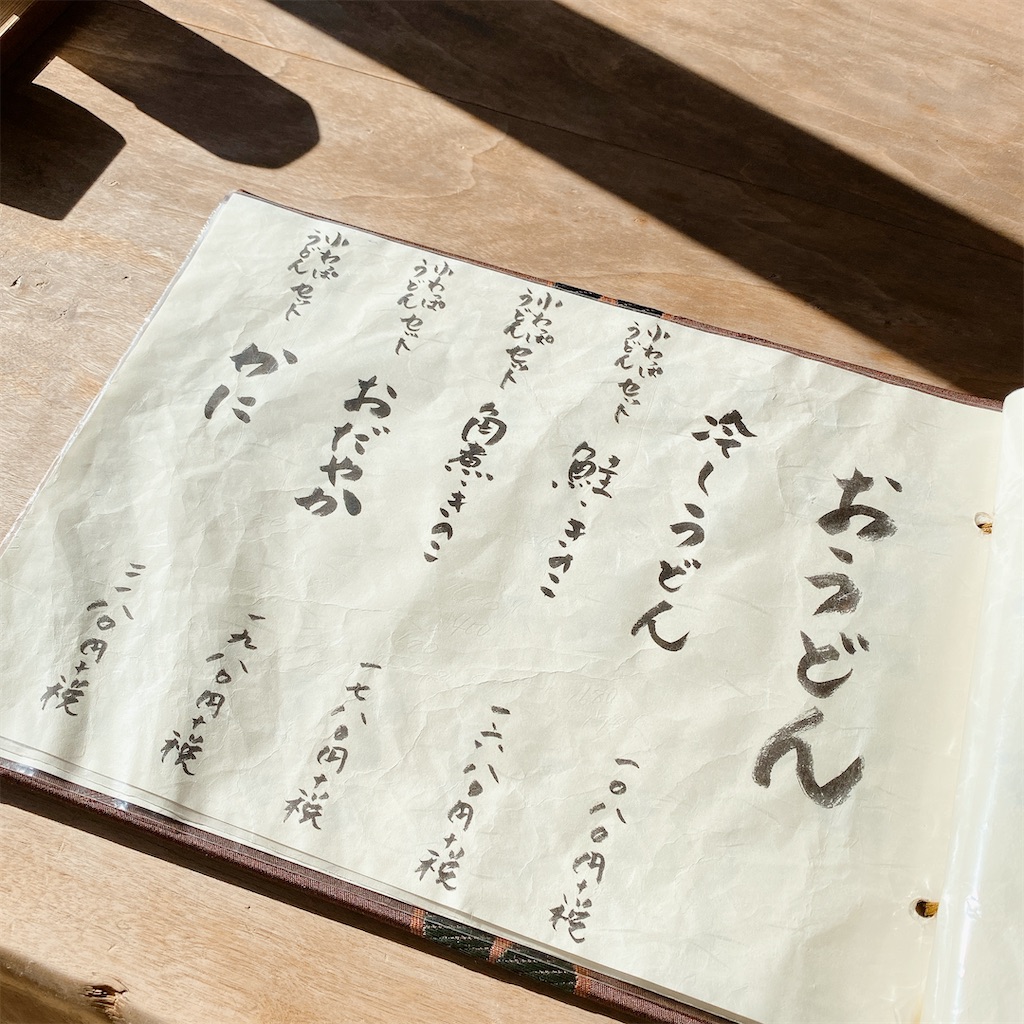 おうどん
冷しうどん
一〇八〇円+税
小わっぱ
うどんセット
鮭・きのこ
一六八〇円+税
小わっぱ
うどんセット
角煮・きのこ
一七八〇円+税
小わっぱ
うどんセット
おだやか
一九八〇円+税
小わっぱ
うどんセット
かに
二一八〇円+税